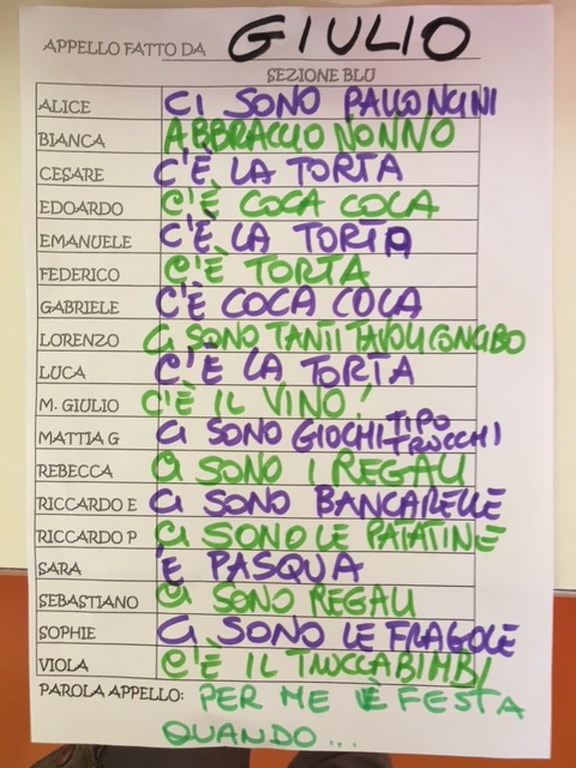 APPELLO FATTO DA GIULIO
SEZIONE BLU
ALICE CI SONO PALLONCINI
BIANCA ABBRACCIO NONNO
CESARE C'È LA TORTA
EDOARDO C'È COCA COLA
EMANUELE C'È LA TORTA
FEDERICO C'È TORTA
GABRIELE C'È COCA COLA
LORENZO CI SONO TANTI TAVOLI CON CIBO
LUCA C'È LA TORTA
M. GIULIO C'È IL VINO!
MATTIA G CI SONO GIOCHI TIPO TRUCCHI
REBECCA CI SONO I REGALI
RICCARDO E CI SONO BANCARELLE
RICCARDO P CI SONO LE PATATINE
SARA È PASQUA
SEBASTIANO CI SONO REGALI
SOPHIE CI SONO LE FRAGOLE
VIOLA C'È IL TRUCCABIMBI
PAROLA APPELLO: PER ME È FESTA
QUANDO...